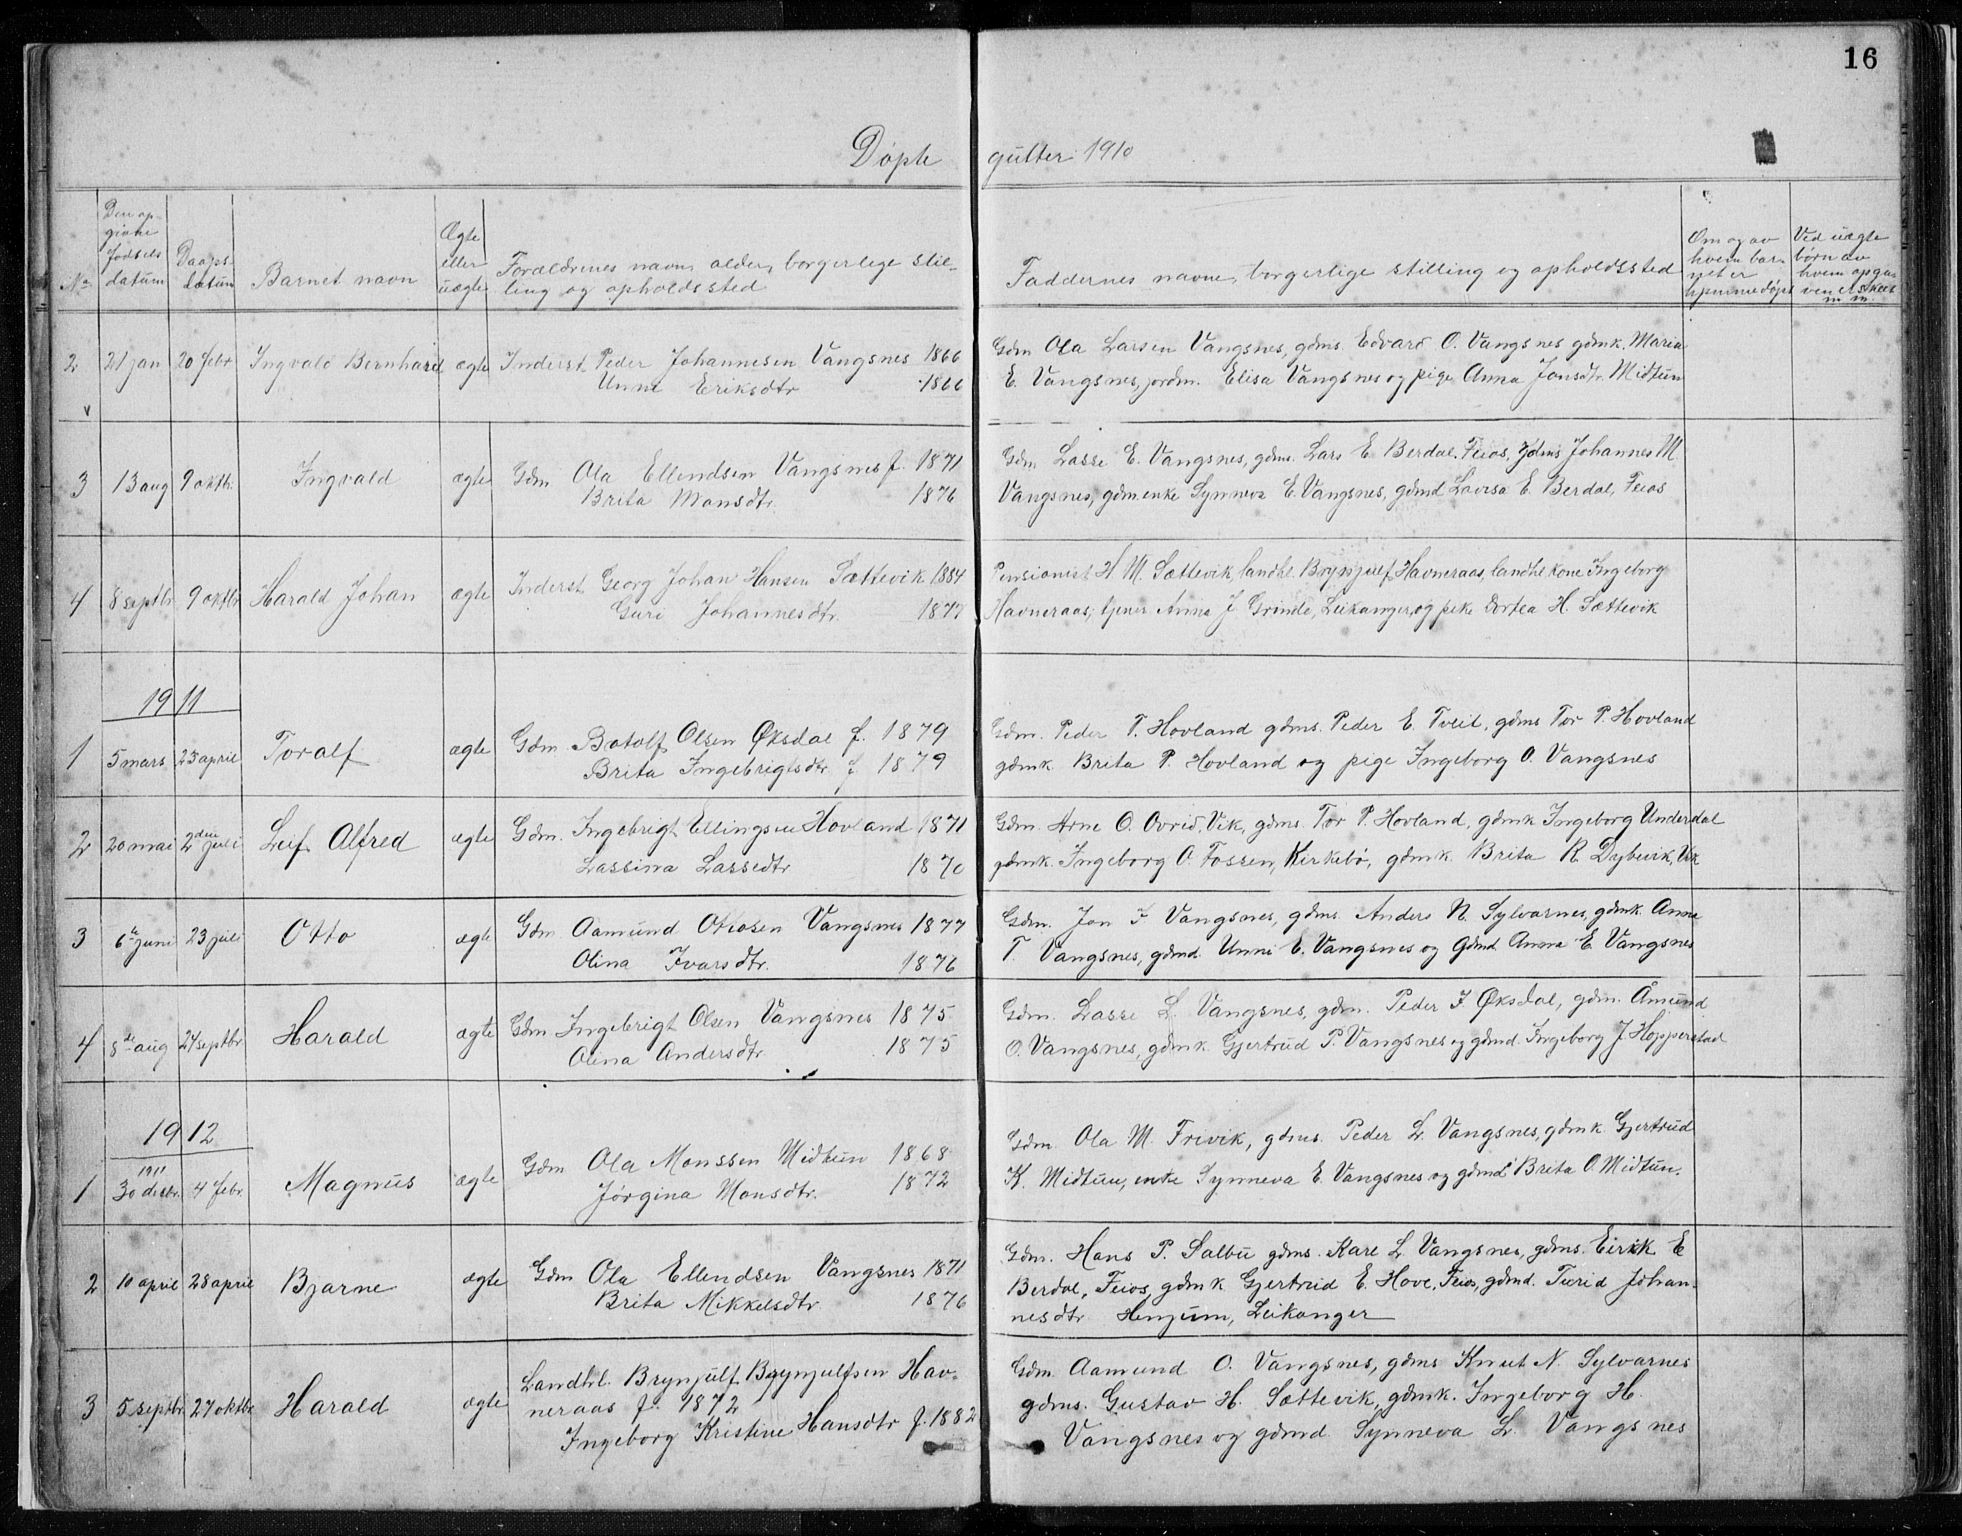 16
Døpte gutter 1910
No
Den opgivne fødsels datum
Daaps datum
Barnet navn
Ægte eller uægte
Forældrenes navn, alder, borgerlige stilling og opholdssted
Faddernes navne, borgerlige stilling og opholdssted
Om og av hvem barnet er hjemmedøpt
Ved uægte børn av hvem opgaven er skeet m. m.
2 21 jan 20 febr Ingvald Bernhard ægte Inderst Peder Johannesen Vangsnes 1866
Unni Eriksdtr 1866
Gdm Ola Larsen Vangsnes, gdms. Edvard O. Vangsnes gdmk. Maria
E. Vangsnes, jordm. Elisa Vangsnes og pige Anna Jonsdtr. Midtun
3 13 aug 9 oktb. Ingvald ægte Gdm Ola Ellendsen Vangsnes f. 1871
Brita Monsdtr. 1876
Gdm Lasse E. Vangsnes, gdms. Lars E. Berdal, Feios, gdms Johannes M.
Vangsnes, gdm.enke Synneva E. Vangsnes, gdmd Lovisa E. Berdal, Feios
4 8 septbr 9 oktbr Harald Johan ægte Inderst Georg Johan Hansen Sættevik 1884
Guri Johannesdtr. 1877
Pensionist H. M. Sættevik, landhl. Brynjulf Havneraas, landhl kone Ingeborg
Havneraas, tjener Anna J. Grinde, Leikanger, og pike Dortea H. Sættevik
1911
1 5 mars 23 april Toralf ægte Gdm Botolf Olsen Øksdal f. 1879
Brita Ingebrigtsdtr f 1879
Gdm. Peder T. Hovland gdms. Peder E. Tveit, gdms Tor P. Hovland
gdmk. Brita P. Hovland og pige Ingeborg O. Vangsnes
2 20 mai 2den juli Leif Alfred ægte Gdm. Ingebrigt Ellingsen Hovland 1871
Lassina Lassedtr 1870
Gdm. Arne O. Ovrid, Vik, gdms. Tor P. Hovland, gdmk Ingeborg Underdal
gdmk. Ingeborg O. Fossen, Kirkebø, gdmk. Brita R. Dybevik, Vik
3 6te juni 23 juli Otto ægte Gdm Aamund Ottosen Vangsnes 1877
Olina Ivarsdtr. 1876
Gdm. Jon F Vangsnes, gdms. Anders N. Sylvarnes, gdmk. Anna
T. Vangsnes, gdmd. Unni E. Vangsnes og gdmd Anna E Vangsnes
4 8de aug 24 septbr Harald ægte Gdm Ingebrigt Olsen Vangsnes 1875
Olina Andersdtr. 1875
Gdm. Lasse L. Vangsnes, gdm. Peder I Øksdal, gdm. Åmund
O. Vangsnes, gdmk. Gjertrud P. Vangsnes og gdmd. Ingeborg J. Hopperstad
1912
1911
1 30 desbr. 4 febr. Magnus ægte Gdm Ola Monssen Midtun 1868
Jørgina Monsdtr. 1872
Gdm Ola M. Frivik, gdms. Peder L. Vangsnes, gdmk. Gjertrud
K. Midtun, enke Synneva E. Vangsnes og gdmd Brita O. Midtun.
2 10 april 28 april Bjarne ægte Gdm Ola Ellendsen Vangsnes 1871
Brita Mikkelsdtr. 1876
Gdm. Hans P. Salbu gdms. Kare L. Vangsnes, gdms. Eirik E
Berdal, Feios, gdmk Gjertrud E. Hove, Feios, gdmd. Turid Johan-
nesdtr Henjum, Leikanger
3 5 septbr 27 oktbr Harald ægte Landhl. Brynjulf Brynjulfsen Hav-
neraas f. 1872
Ingeborg Kristine Hansdtr f. 1882
Gdm Aamund O. Vangsnes, gdms Knut N. Sylvarnes
gdms. Gustav H. Sættevik, gdmk. Ingeborg H.
Vangsnes og gdmd Synneva L. Vangsnes